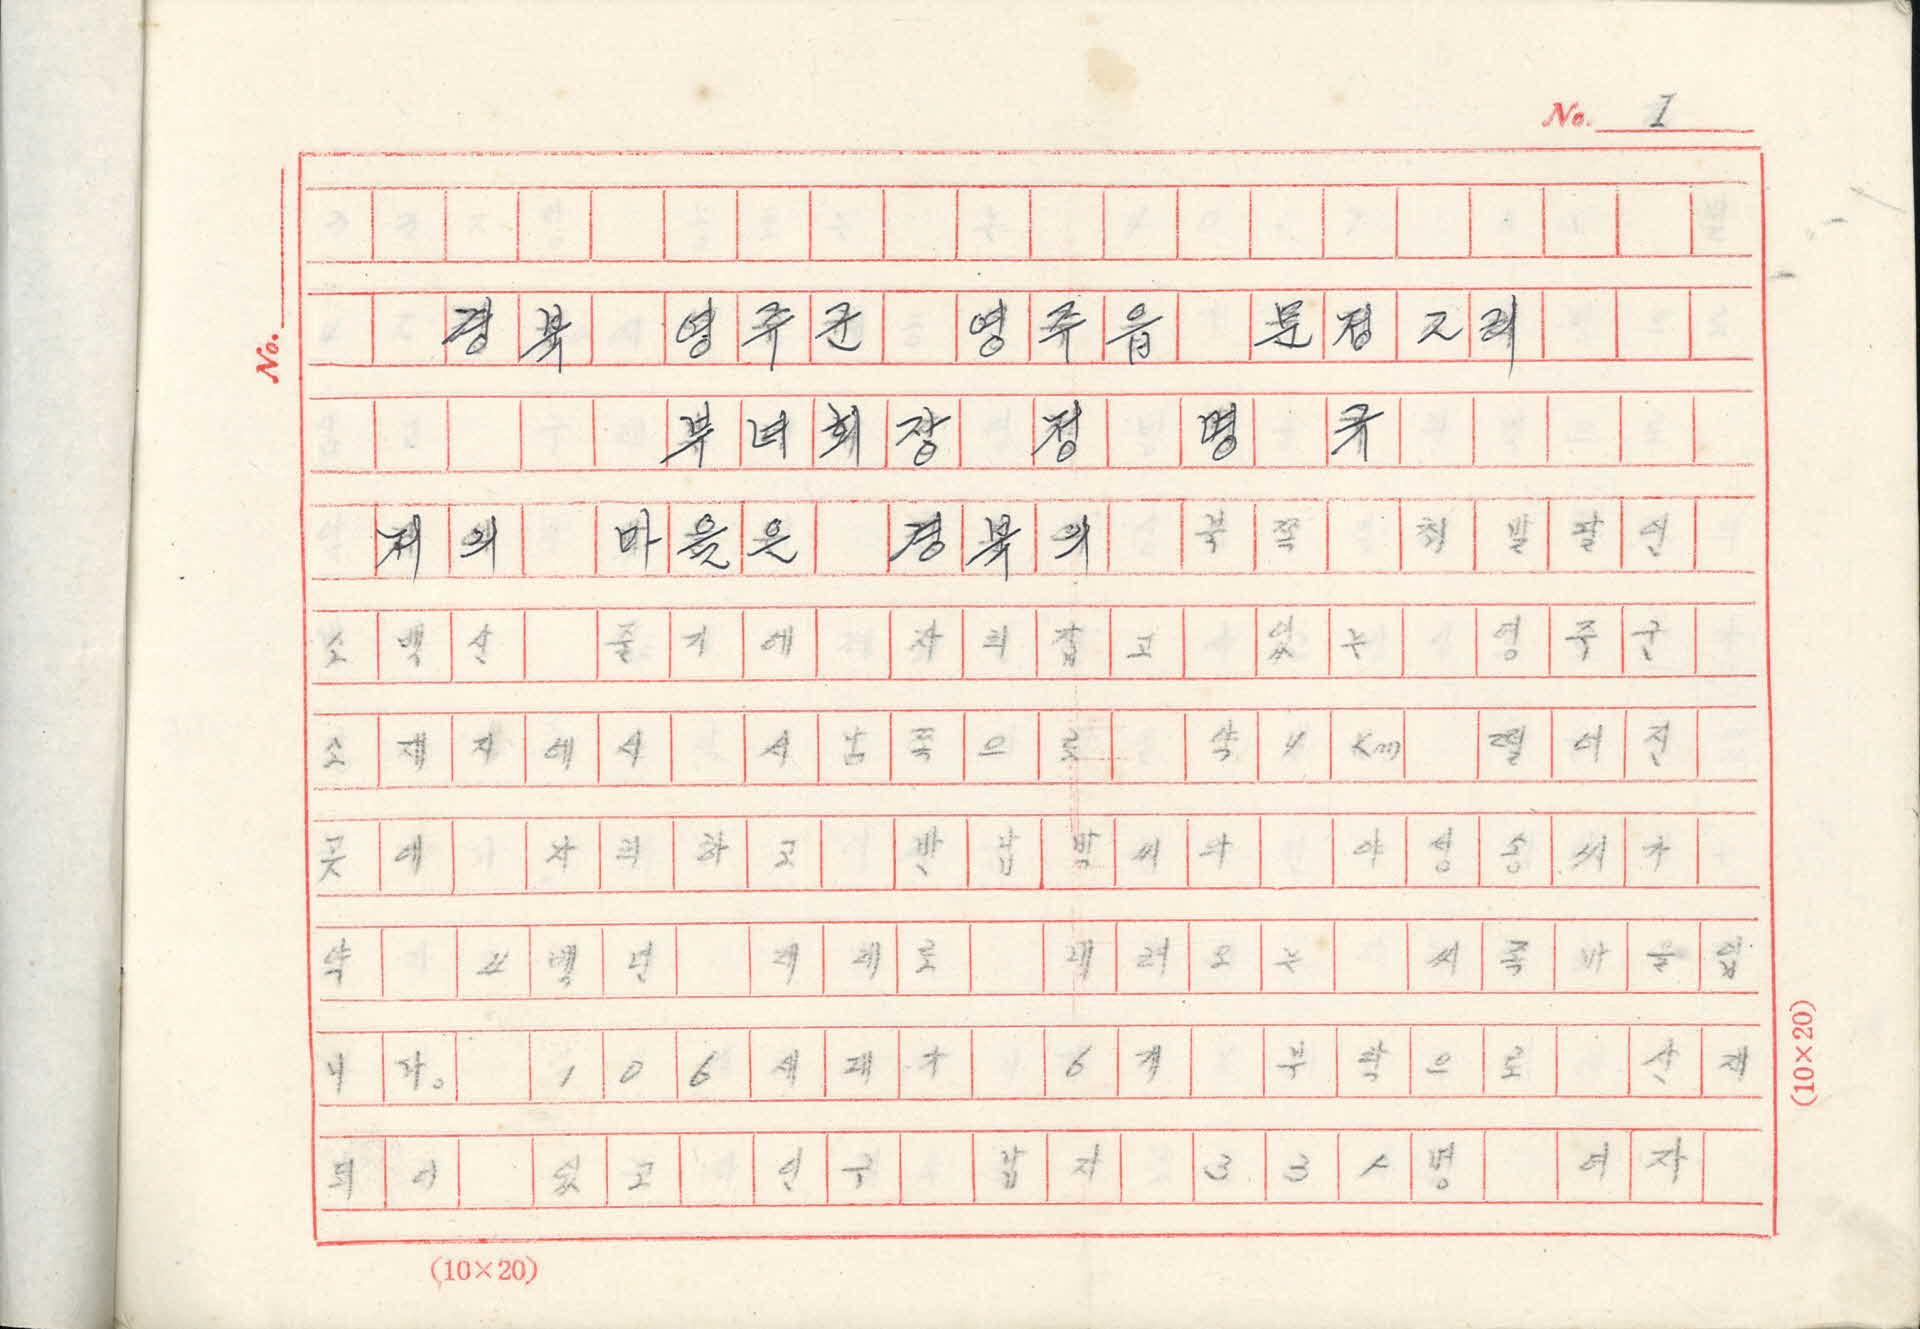 No. 1
No.
경북 영주군 영주읍 문정 2리
부녀회장 정 명 규
저의 마을은 경북의 북쪽 최 말단인
소백산 줄기에 자리잡고 있는 영주군
소재지에서 서남쪽으로 약 4 Km 떨어진
곳에 자리하고 반남 박씨와 야성 송씨가
약 4백년 대대로 내려오는 씨족마을입
니다. 106세대가 6개 부락으로 산재
되어 있고 인구 남자 33 명 여자
(10×20)
(10×20)